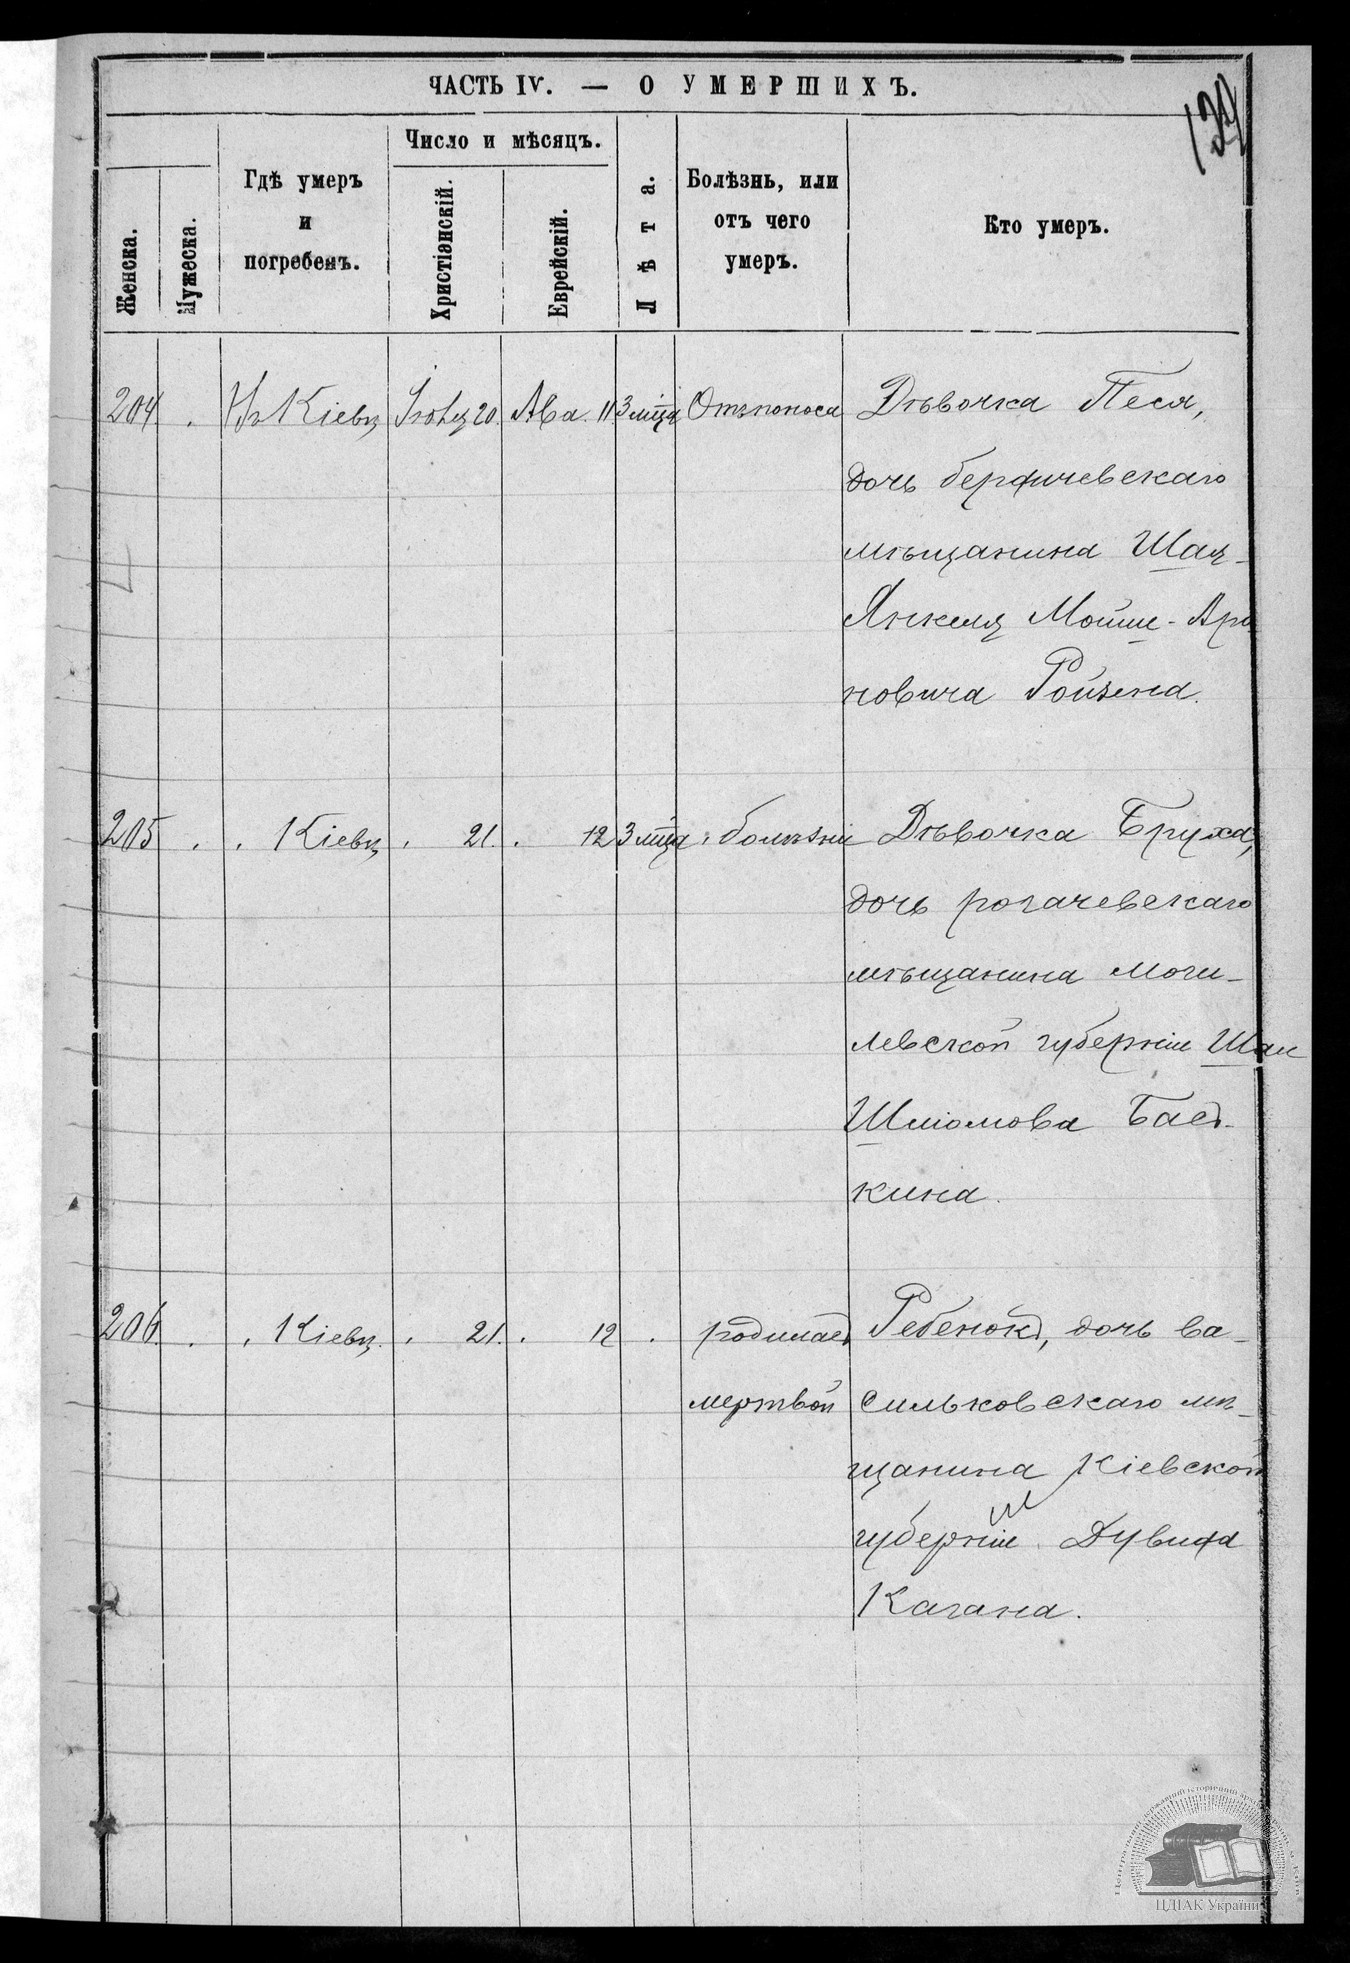 ЧАСТЬ IV. — О УМЕРШИХЪ.
Женска.
Мужеска.
Гдѣ умеръ
и
погребенъ.
Число и мѣсяцъ.
Христіянскій.
Еврейскій.
Лѣта.
Болѣзнь, или
отъ чего
умеръ.
Кто умеръ.
204 Въ Кіевѣ Іюля 20. Ава 11 3 мца Отъ поноса Дѣвочка Песя,
дочь бердичевскаго
мѣщанина Шая-
Янкеля Мойше-Аро
новича Ройзена.
205 Кіевѣ 21. 12 3 мца болѣзни Дѣвочка Бруха,
дочь рогачевскаго
мѣщанина моги-
левской губерніи Шаи
Шліомова Бас-
кина.
206. Кіевѣ. 21. 12 родилась Ребенокъ, дочь ва-
мертвой сильковскаго мѣ-
щанина Кіевской
губерніи Дувида
Кагана.
ЦДІАК України